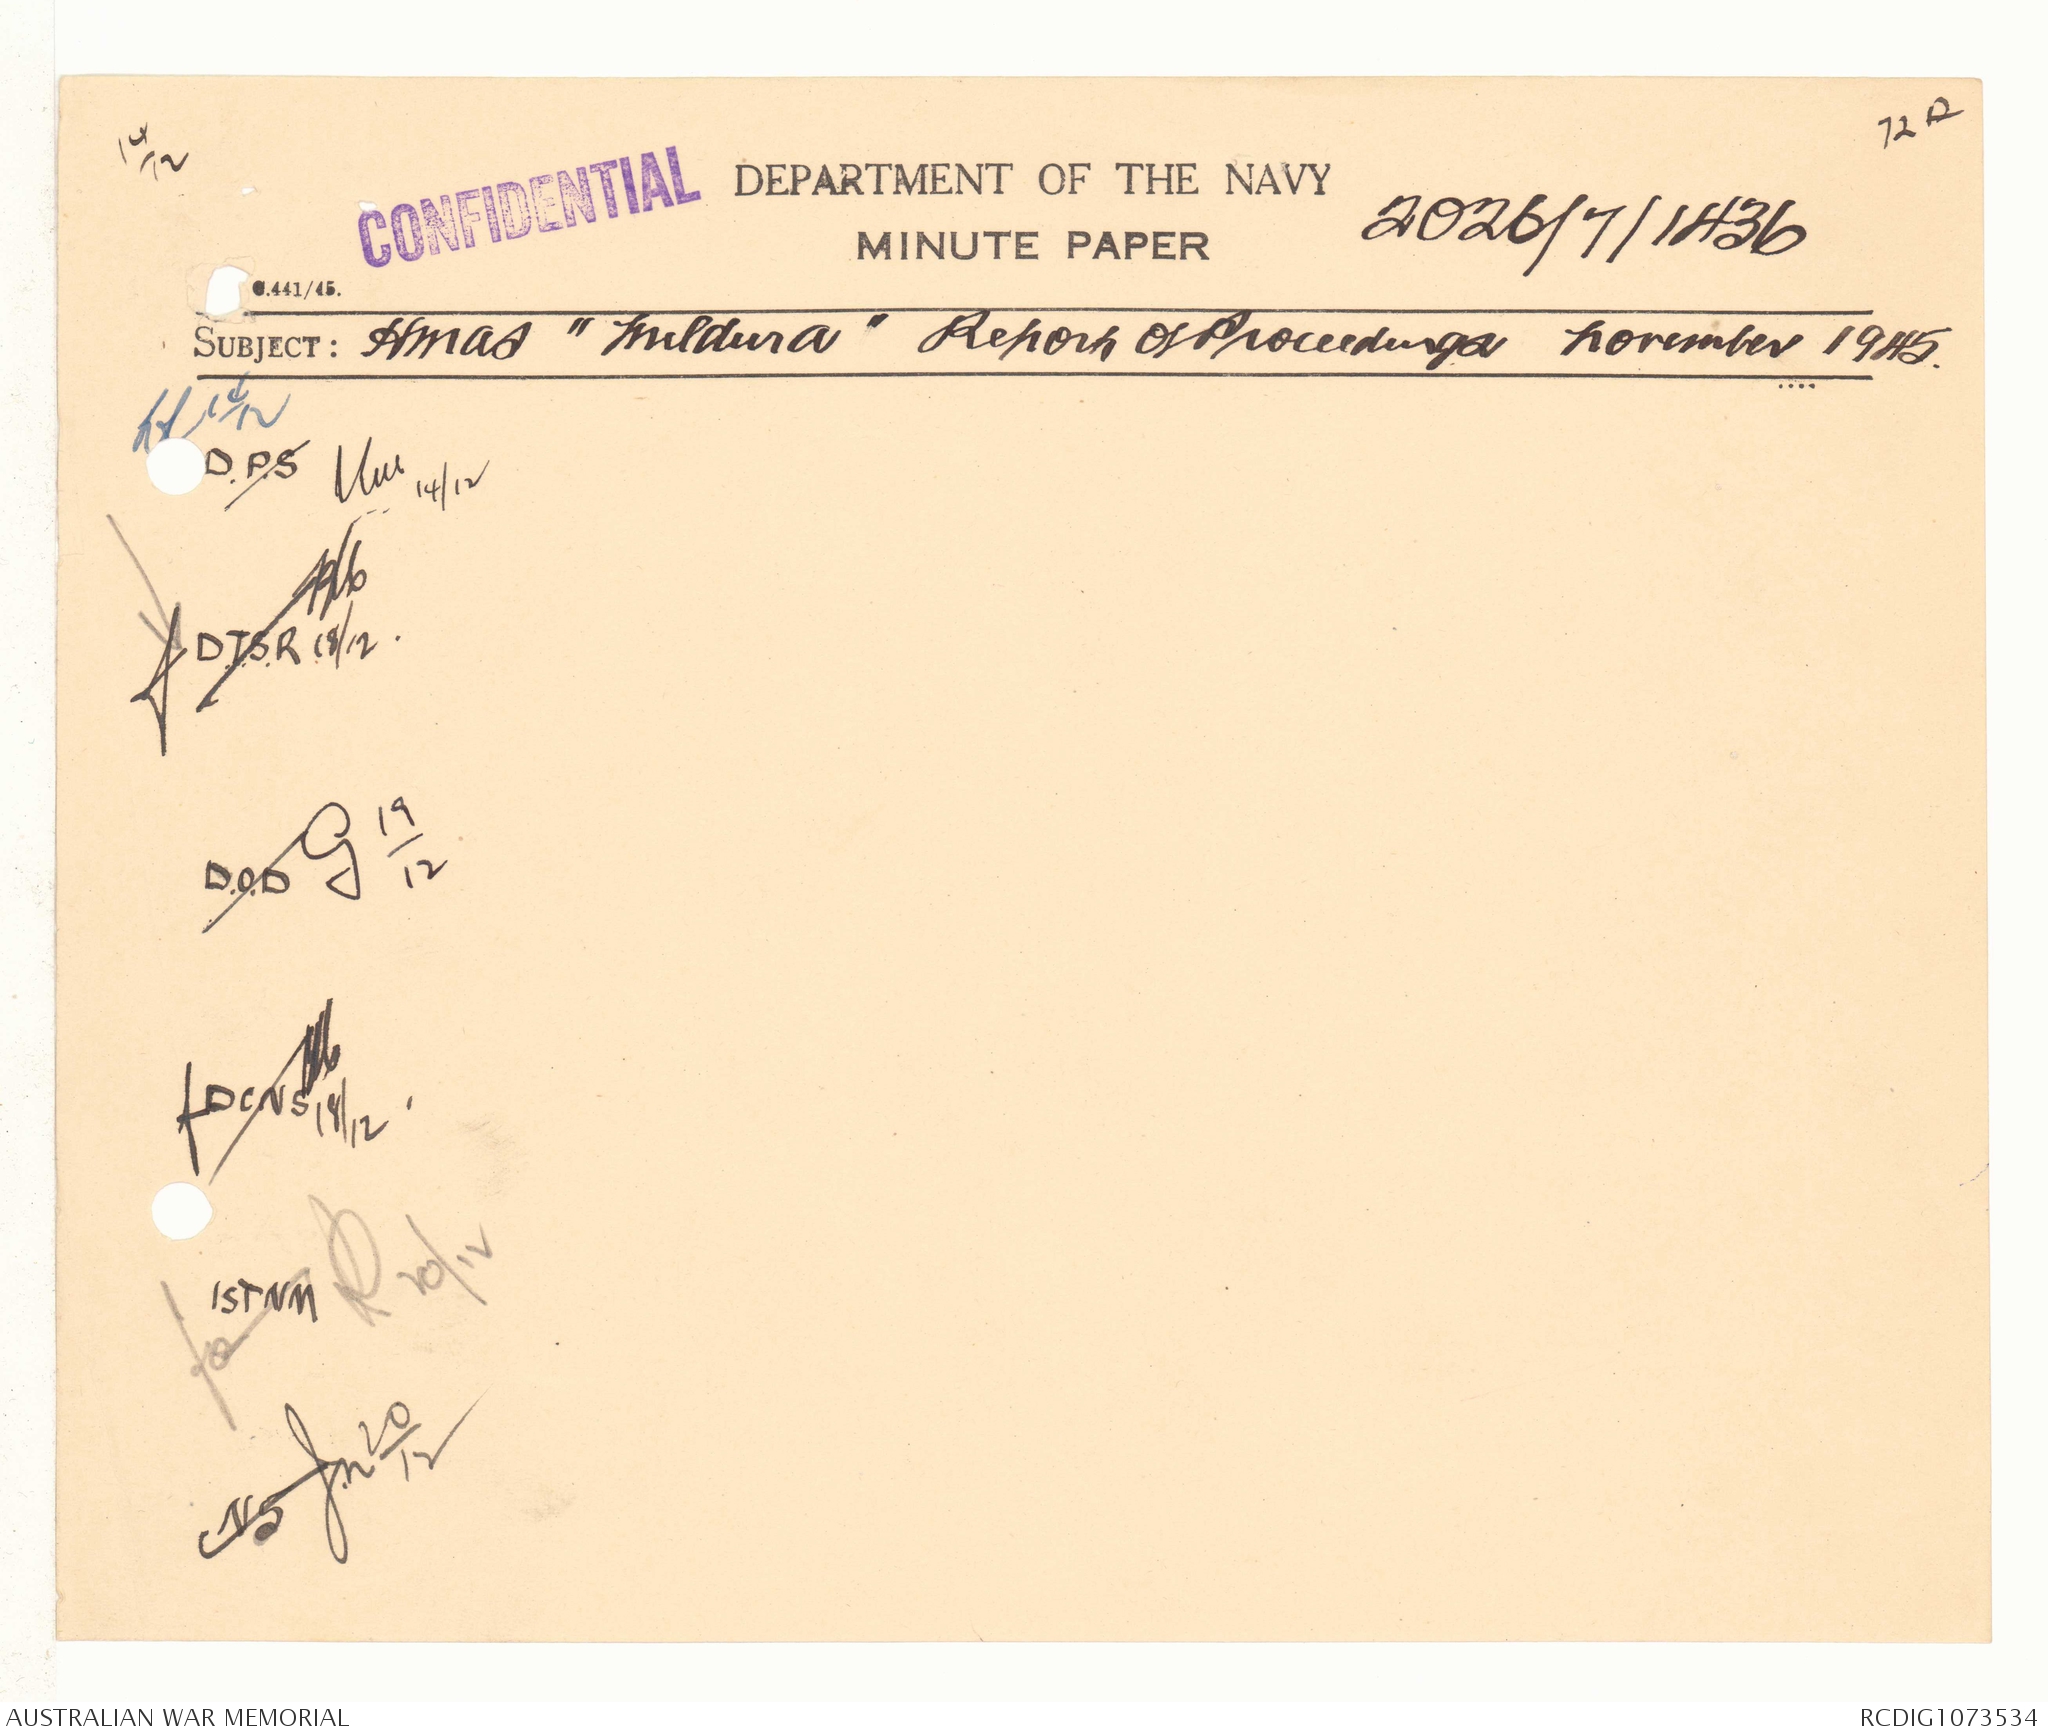 14/12
72A
CONFIDENTIAL
DEPARTMENT OF THE NAVY
2026/7/1436
MINUTE PAPER
C.441/45.
SUBJECT: HMAS "Mildura" Report of Proceedings November 1945.
14/12
D.P.S 14/12
D.T.S.R 18/12.
D.O.D G 19/12
DCNS 18/12.
1STNM 20/12
CNS 20/12
AUSTRALIAN WAR MEMORIAL
RCDIG1073534